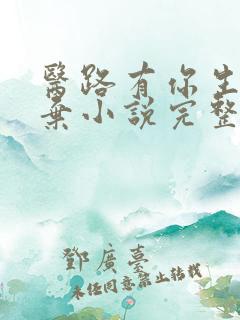 醫路有你生
棄小說完整
鄧廣臺
未經同意禁止轉載